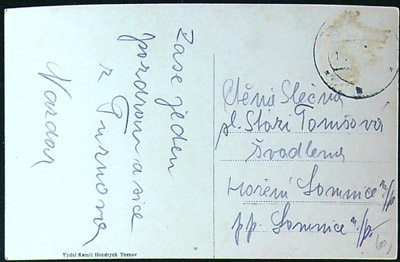 Zase jeden
pozdrav a sice
z Turnova
Nazdar
Ctěná Slečna
sl. Stazi Tomšová
Švadlena
Hoření Lomnice n/p
pp. Lomnice n/p
Vydal Kamil Hendrych Turnov